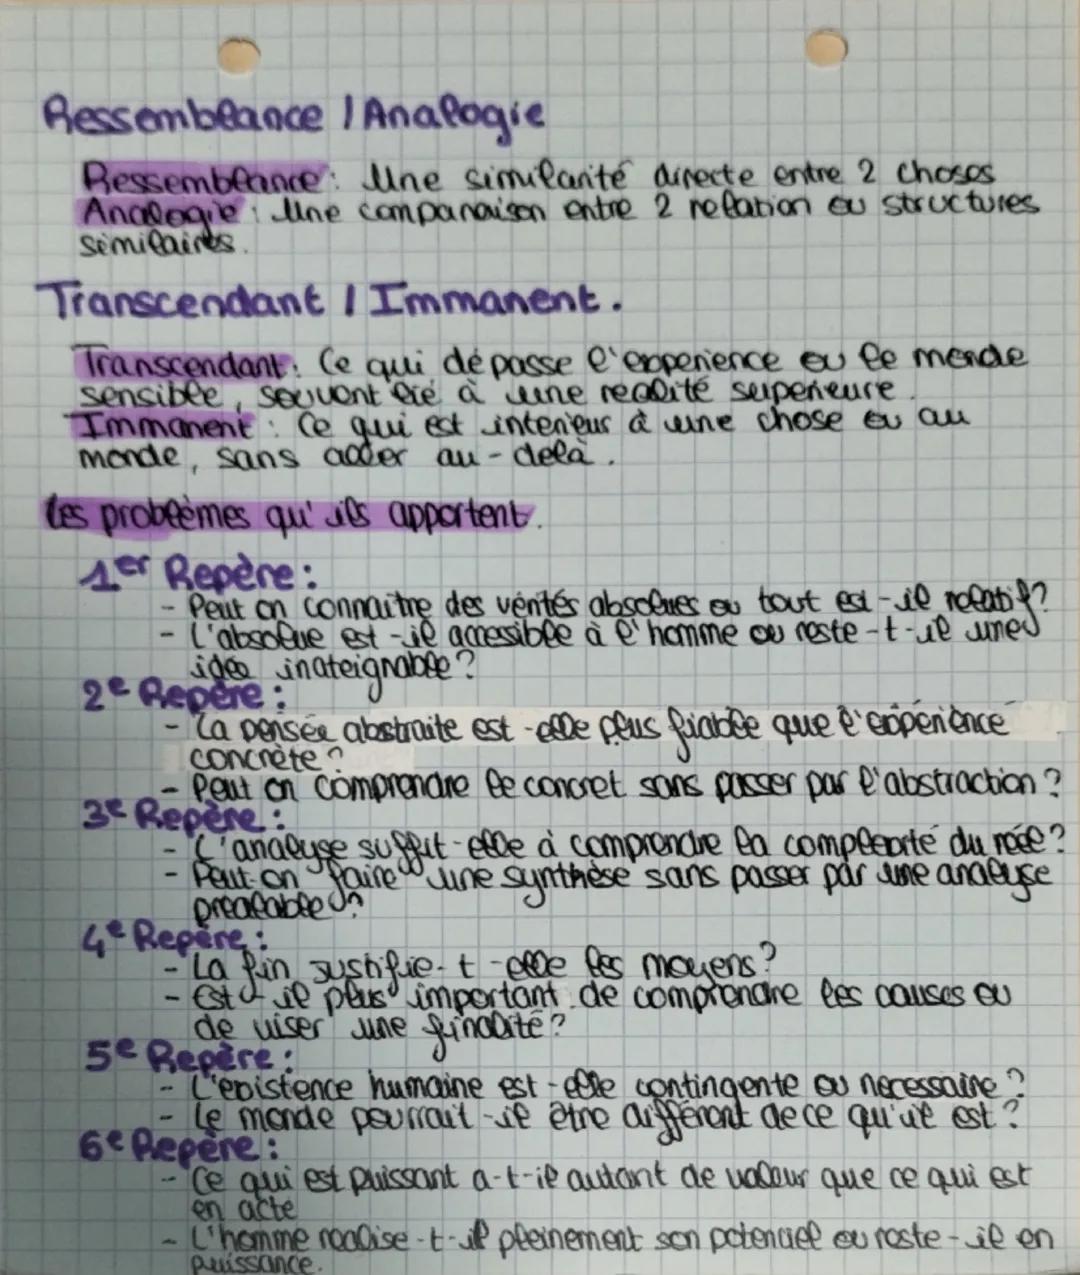 Ressemblance / Analogie
Ressemblance : Une similarité directe entre 2 choses
Analogie : Une comparaison entre 2 relation ou structures
similaires.
Transcendant / Immanent.
Transcendant : Ce qui dépasse l'experience ou le monde
sensible, souvent lié à une realité superieure.
Immanent : Ce qui est interieur à une chose ou au
monde, sans aller au-delà.
Les problèmes qu'ils apportent.
1er Repère :
- Peut on connaitre des vérités absolues ou tout est-il relatif ?
- L'absolue est-il accessible à l'homme ou reste-t-il une
idée inateignable ?
2e Repère :
- La pensée abstraite est-elle plus fiable que l'expérience
concrète ?
- Peut on comprendre le concret sans passer par l'abstraction ?
3e Repère :
- L'analyse suffit-elle à comprendre la complexité du réel ?
- Peut-on faire une synthèse sans passer par une analyse
prealable ?
4e Repère :
- La fin justifie-t-elle les moyens ?
- Est-il plus important de comprendre les causes ou
de viser une finalité ?
5e Repère :
- L'existence humaine est-elle contingente ou necessaire ?
- Le monde pourrait-il être différent de ce qu'il est ?
6e Repère :
- Ce qui est puissant a-t-il autant de valeur que ce qui est
en acte
- L'homme realise-t-il pleinement son potenciel ou reste-il en
puissance.